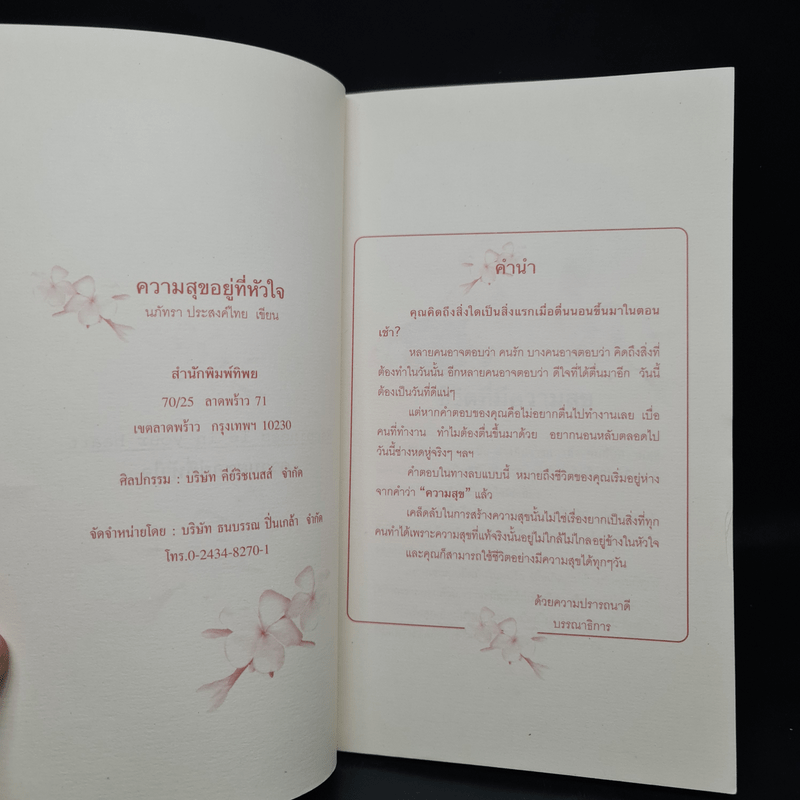 ความสุขอยู่ที่หัวใจ
นภัทรา ประสงค์ไทย เขียน
สำนักพิมพ์ทิพย
70/25 ลาดพร้าว 71
เขตลาดพร้าว กรุงเทพฯ 10230
ศิลปกรรม : บริษัท คีย์วิซเนสส์ จำกัด
จัดจำหน่ายโดย : บริษัท ธนบรรณ ปิ่นเกล้า จำกัด
โทร.0-2434-8270-1
คำนำ
คุณคิดถึงสิ่งใดเป็นสิ่งแรกเมื่อตื่นนอนขึ้นมาในตอน
เช้า?
หลายคนอาจตอบว่า คนรัก บางคนอาจตอบว่า คิดถึงสิ่งที่
ต้องทำในวันนั้น อีกหลายคนอาจตอบว่า ดีใจที่ได้ตื่นมาอีก วันนี้
ต้องเป็นวันที่ดีแน่ๆ
แต่หากคำตอบของคุณคือไม่อยากตื่นไปทำงานเลย เบื่อ
คนที่ทำงาน ทำไมต้องตื่นขึ้นมาด้วย อยากนอนหลับตลอดไป
วันนี้ช่างหดหู่จริงๆ ฯลฯ
คำตอบในทางลบแบบนี้ หมายถึงชีวิตของคุณเริ่มอยู่ห่าง
จากคำว่า “ความสุข” แล้ว
เคล็ดลับในการสร้างความสุขนั้นไม่ใช่เรื่องยากเป็นสิ่งที่ทุก
คนทำได้เพราะความสุขที่แท้จริงนั้นอยู่ไม่ใกล้ไม่ไกลอยู่ข้างในหัวใจ
และคุณก็สามารถใช้ชีวิตอย่างมีความสุขได้ทุกๆวัน
ด้วยความปรารถนาดี
บรรณาธิการ